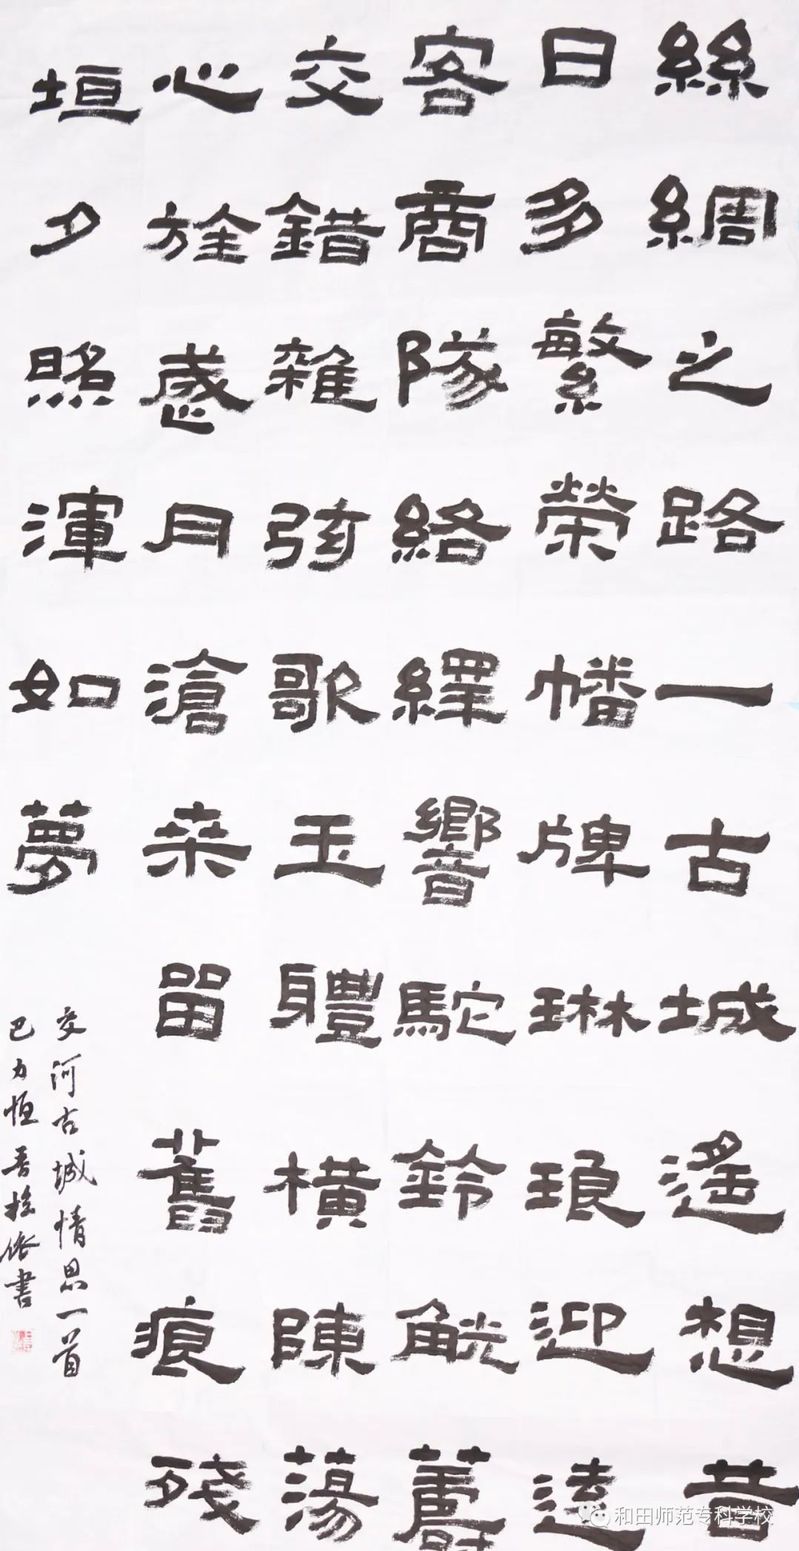 絲綢之路一古城遙想昔
日多繁榮幡牌琳琅迎遠
客商隊絡繹響駝鈴觥籌
交錯雜弦歌玉體橫陳蕩
心旌歲月滄桒留舊痕殘
垣夕照渾如夢
交河古城情思一首
巴力恒書
和田师范专科学校